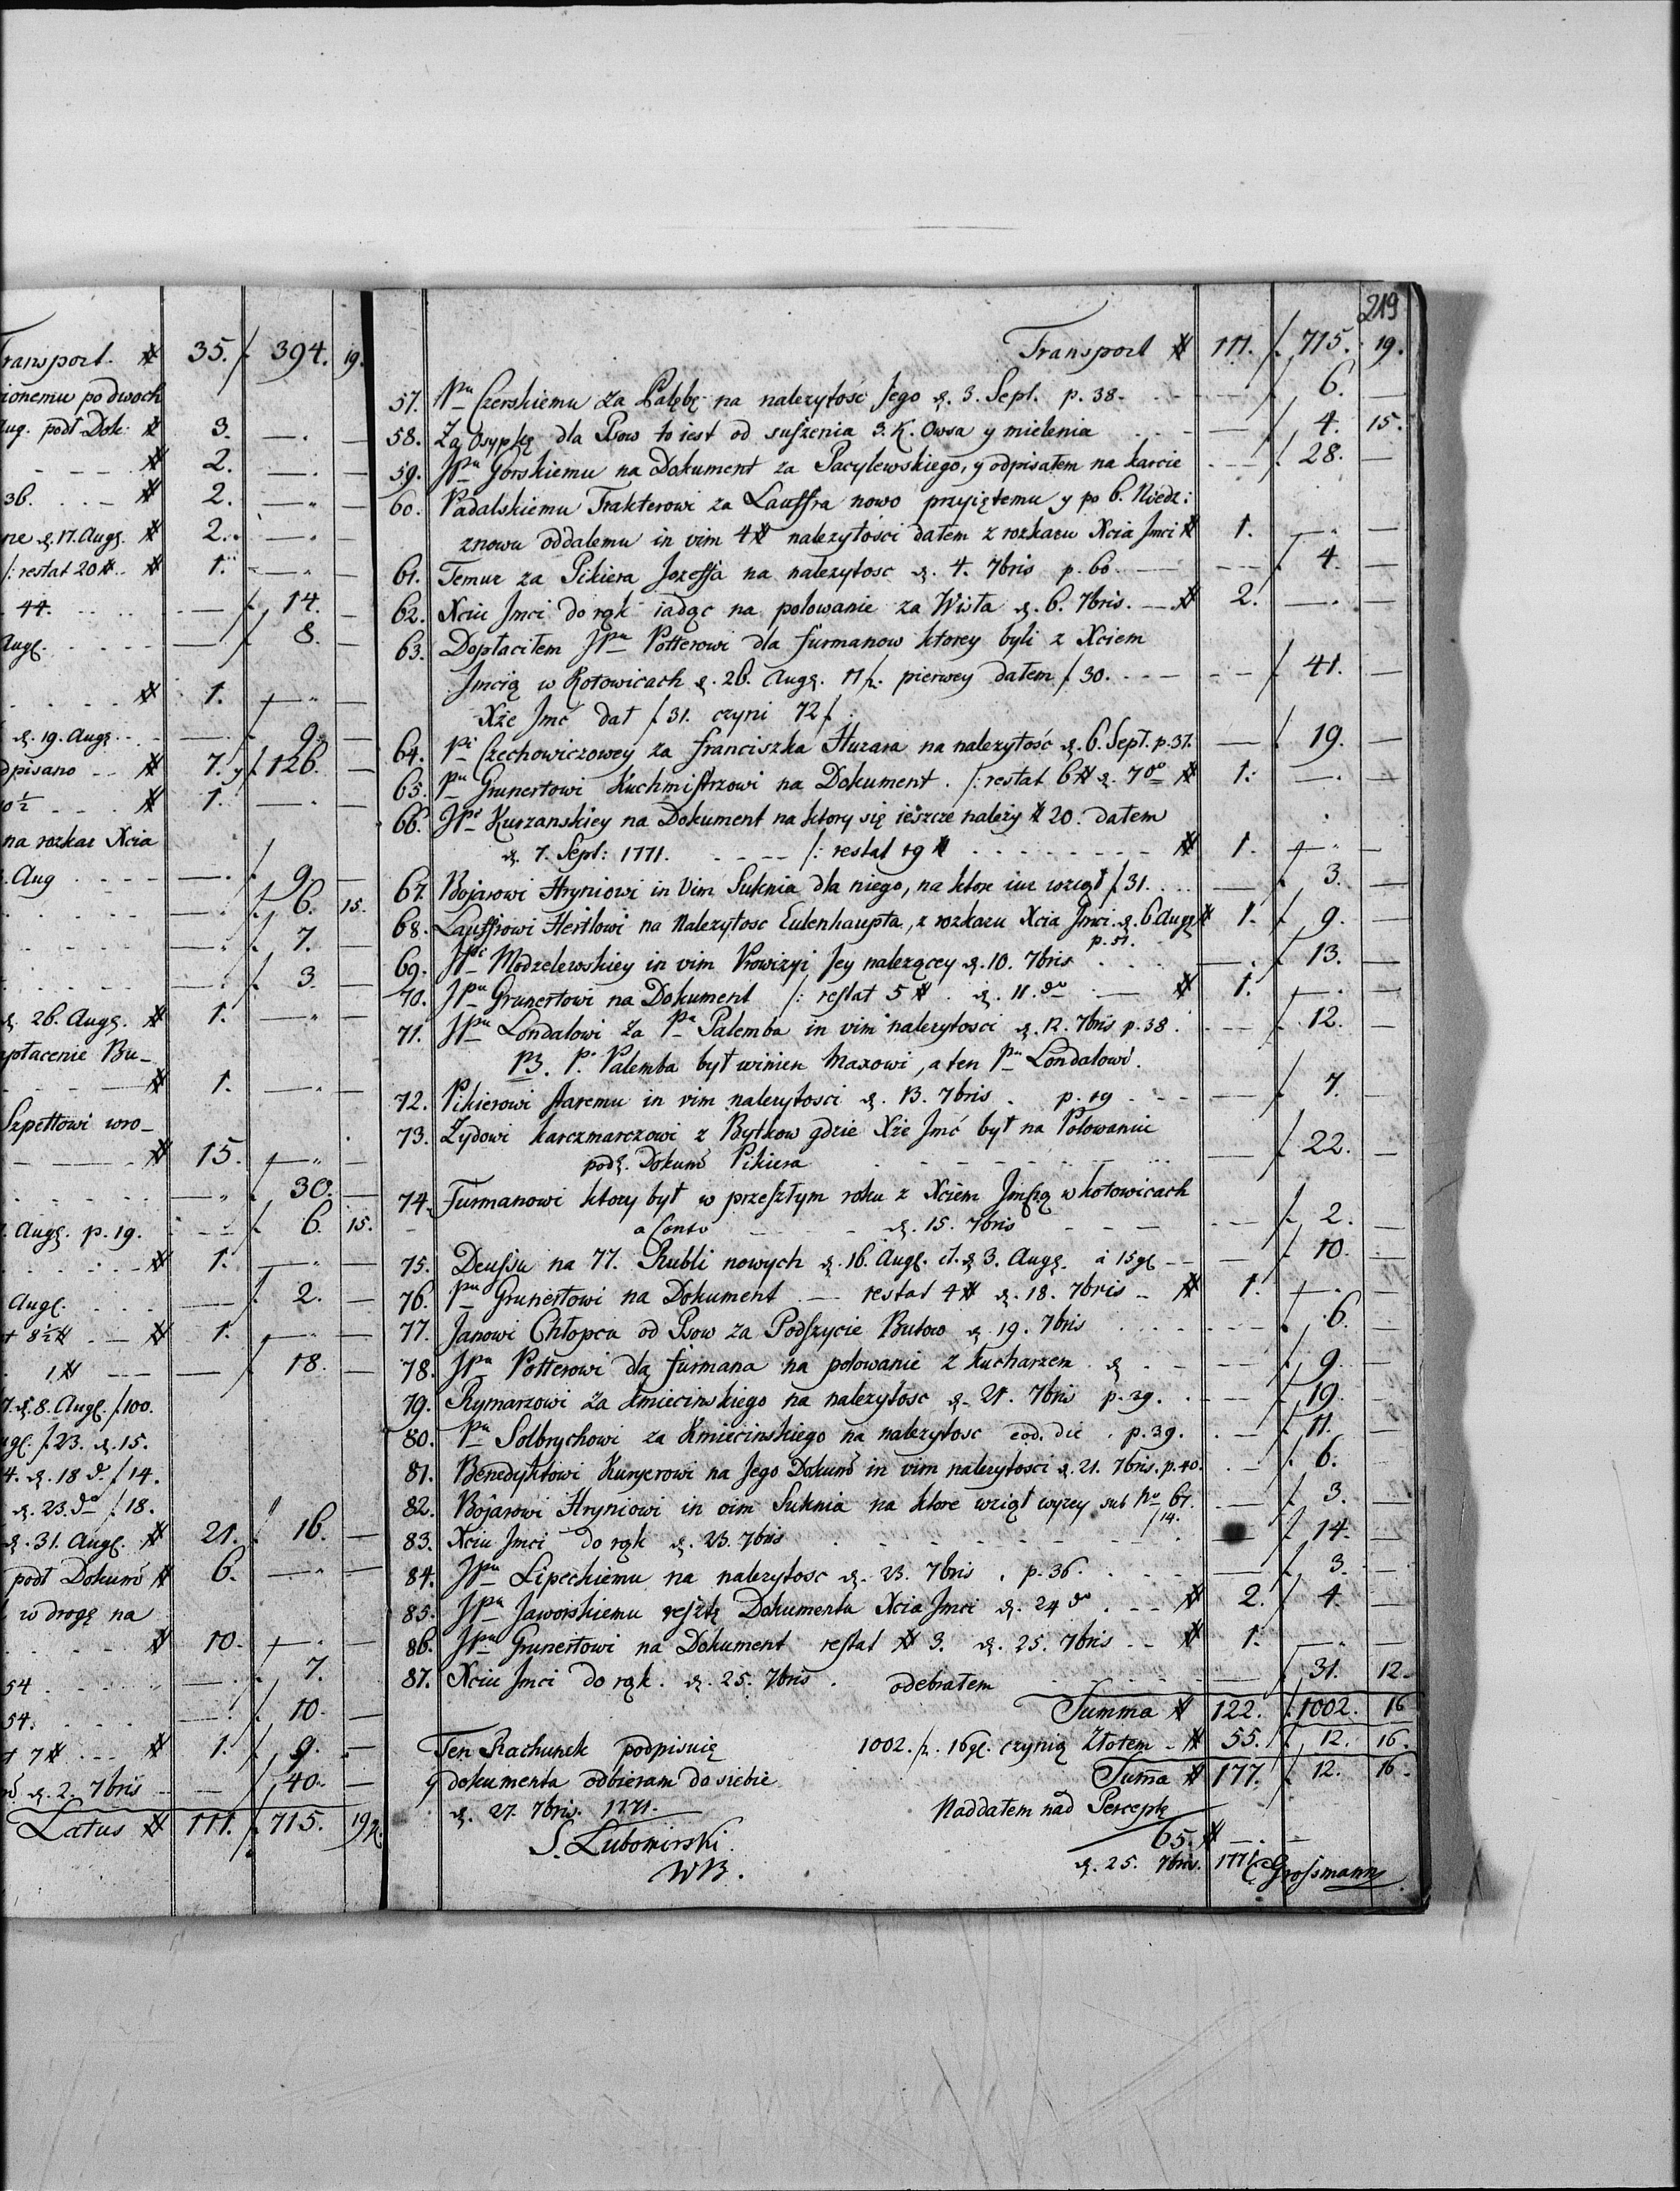 Transport # 35. f. 394. 19.
ionemu po dwoch
aug. podł Dok: # 3. —. —
# 2. —. —
36. # 2. —. —
ne d. 17. Aug. # 2. —. —
/: restat 20 # # 1. —. —
44. — f. 14. —
Aug. — f. 8. —
# 1. —. —
d. 19. Aug. — f. 9. —
dpisano # 7. f. 126. —
10½ # 1. —. —
na rozkaz Xcia
Aug — f. 9. —
— f. 6. 15.
— f. 7. —
— f. 3. —
d. 26. Aug. # 1. —. —
płacenie Bu-
# 1. —. —
Szpettowi wro-
# 15. —. —
— f. 30. —
Aug. p. 19. — f. 6. 15.
# 1. —. —
Aug. — f. 2. —
t 8½ # # 1. —. —
1 # — f. 18. —
7. d. 8. Aug. f. 100.
ug. f. 23. d. 15.
4. d. 18 do f. 14.
d. 23. do f. 18.
d. 31. Aug. # 21. f. 16. —
podł Dokum # 6. —. —
w drogę na
# 10. —. —
54 — f. 7.
54. — f. 10. —
t 7 # # 1. f. 9. —
d. 2. 7bris — f. 40. —
Latus # 111. f. 715. 19 g.
219
Transport # 111. f. 715. 19.
57. Pu Czerskiemu za Palębę na nalezytość Jego d. 3. Sept. p. 38. — f. 6. —
58. Za Osypkę dla Psow to iest od suszenia 3. K. Owsa y mielenia — f. 4. 15.
59. JPu Gorskiemu na Dokument za Pacylewskiego, y odpisałem na karcie f. 28. —
60. Padalskiemu Trakterowi za Lauffra nowo przyiętemu y po 6. Niedz:
znowu oddalemu in vim 4 # nalezytości dałem z rozkazu Xcia Jmci # 1. —. —
61. Temuz za Pikiera Jozeffa na nalezytosc d. 4. 7bris p. 60. f. 4. —
62. Xciu Jmci do rąk iadąc na polowanie za Wisła d. 6. 7bris. # 2. —. —
63. Dopłaciłem JPu Potterowi dla furmanow ktorey byli z Xciem
Jmcią w Kotowicach d. 26. Aug. 11 f. pierwey dałem f. 30. f. 41. —
Xże Jmć dał f. 31. czyni 72 f.
64. Pi Czechowiczowey za Franciszka Huzara na nalezytość d. 6. Sept. p. 37. — f. 19. —
65. Pu Grunertowi Kuchmistrzowi na Dokument. /: restat 6 # d. 7 do # 1. —. —
66. JPi Kurzanskiey na Dokument na ktory się ieszcze nalezy # 20. dałem
d. 7. Sept: 1771. /: restat 19 # # 1. —. —
67. Bojarowi Hryniowi in Vim Suknia dla niego, na ktore iuz wziął f. 31. — f. 3. —
68. Lauffrowi Hertlowi na Nalezytosc Eulenhaupta, z rozkazu Xcia Jmci d. 6 Aug # 1. f. 9. —
p. 51.
69. JPi Modzelewskiey in vim Prowizyi Jey nalezącey d. 10. 7bris — f. 13. —
70. JPu Grunertowi na Dokument /: restat 5 # d. 11. do # 1. —. —
71. JPu Londalowi za Pa Palemba in vim nalezytosci d. 12. 7bris p. 38. f. 12. —
P. Palemba był winien Maxowi, a ten Pu Londalowi.
72. Pikierowi staremu in vim nalezytosci d. 13. 7bris. p. 19 f. 7. —
73. Zydowi karczmarczowi z Bytkow gdzie Xże Jmć był na Polowaniu
podł. Dokum Pikiera — f. 22. —
74. Furmanowi ktory był w przeszłym roku z Xciem Jmcią w kotowicach
a Conto d. 15. 7bris f. 2. —
75. Deussu na 77. Rubli nowych d. 16. Aug. et d. 3. Aug. à 15 gl — f. 10. —
76. Pu Grunertowi na Dokument restat 4 # d. 18. 7bris # 1. —. —
77. Janowi Chłopcu od Psow za Podszycie Butow d. 19. 7bris f. 6. —
78. JPu Potterowi dla furmana na polowanie z kucharzem d. f. 9. —
79. Rymarzowi za Kmiecinskiego na nalezytosc d. 21. 7bris p. 39. f. 19. —
80. Pu Solbrychowi za Kmiecinskiego na nalezytosc eod. die. p. 39. f. 11. —
81. Benedyktowi Kuryerowi na Jego Dokum in vim nalezytosci d. 21. 7bris. p. 40. f. 6. —
82. Bojarowi Hryniowi in vim Suknia na ktore wziął wyzey sub No 67. — f. 3. —
f 14.
83. Xciu Jmci do rąk d. 23. 7bris — f. 14. —
84. JPu Lipeckiemu na nalezytosc d. 23. 7bris. p. 36. — f. 3. —
85. JPu Jaworskiemu resztę Dokumentu Xcia Jmci d. 24 do # 2. f. 4. —
86. JPu Grunertowi na Dokument restat # 3. d. 25. 7bris # 1. —. —
87. Xciu Jmci do rąk. d. 25. 7bris. odebrałem — f. 31. 12.
Summa # 122. f. 1002. 16
Ten Rachunek podpisuię 1002. f. 16 gl. czynią Złotem # 55. f. 12. 16.
y dokumenta odbieram do siebie Suma # 177. f. 12. 16.
d. 27. 7bris. 1771. Naddałem nad Perceptę
S. Lubomirski 65. # —. —
WB. d. 25. 7bris. 1771 Grossmann